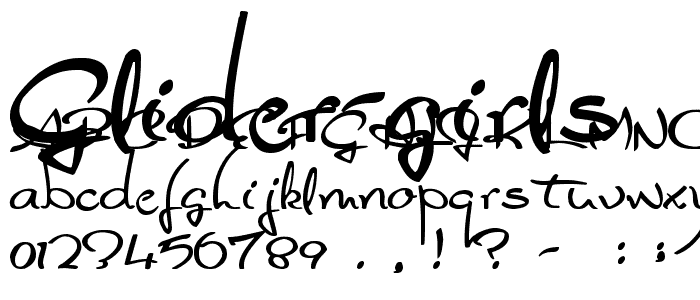 Glider-girls
ABCDEFGHIJKLMNO
abcdefghijklmnopqrstuvwx
0123456789 . , ! ? - : ;